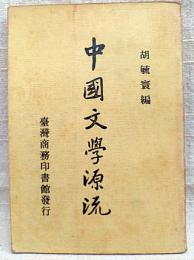 胡毓寰編
中國文學源流
臺灣商務印書館發行